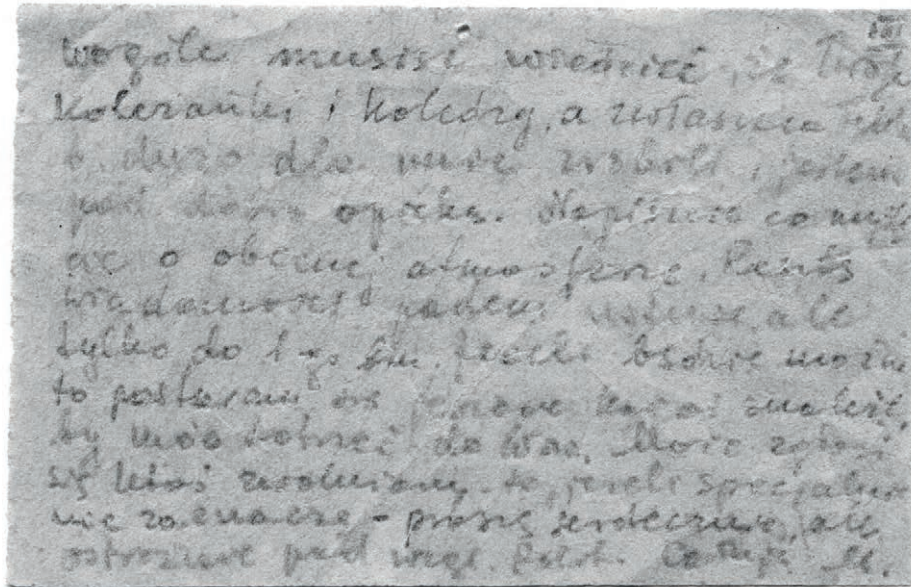 wogóle musisz wiedzieć, że Twoje
Koleżanki i Koledzy, a zwłaszcza
b. dużo dla mnie zrobili, jestem
pod dobrą opieką. Napiszcie co
o obecnej atmosferze. Resztę
wiadomości podam ustnie, ale
tylko do Jeżeli będzie można
to postaram się jeszcze kogoś znaleźć,
by mógł dotrzeć do Was. Może zgłosi
się ktoś zwolniony - to, jeżeli specjalnie
nie zaznaczę - proszę serdecznie, ale
ostrożnie pod wzgl. Całuję M.